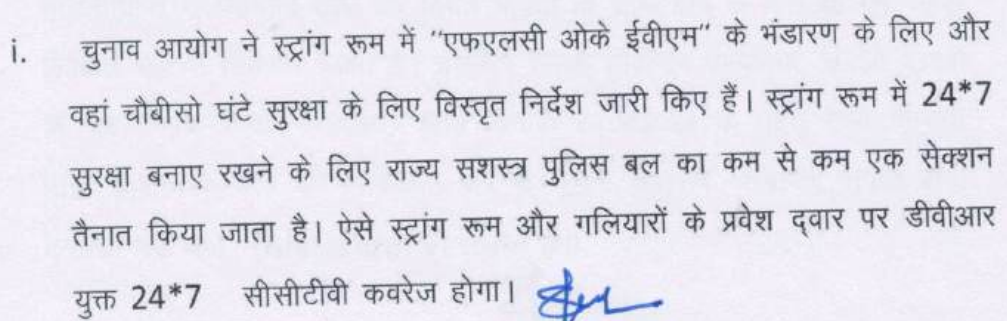 i. चुनाव आयोग ने स्ट्रांग रूम में "एफएलसी ओके ईवीएम" के भंडारण के लिए और
वहां चौबीसो घंटे सुरक्षा के लिए विस्तृत निर्देश जारी किए हैं। स्ट्रांग रूम में 24*7
सुरक्षा बनाए रखने के लिए राज्य सशस्त्र पुलिस बल का कम से कम एक सेक्शन
तैनात किया जाता है। ऐसे स्ट्रांग रूम और गलियारों के प्रवेश द्वार पर डीवीआर
युक्त 24*7 सीसीटीवी कवरेज होगा।